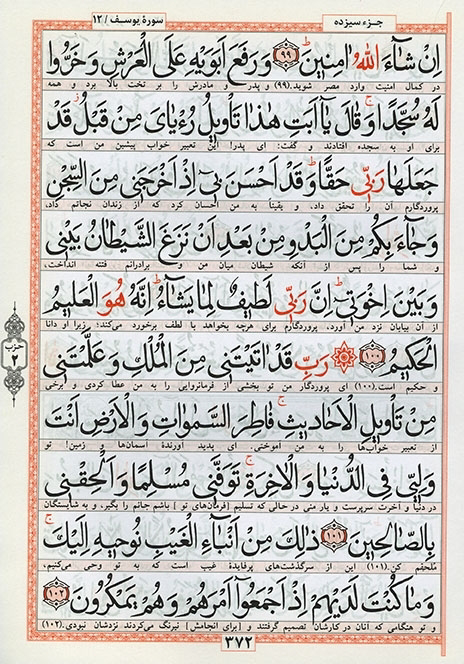 جزء سیزده
سورهٔ یوسف / ۱۲
اِنْ شٰاۤءَ اللّٰهُ اٰمِنینَ ﴿۹۹﴾ وَ رَفَعَ اَبَوَیْهِ عَلَی الْعَرْشِ وَ خَرُّوا
در کمال امنیت وارد مصر شوید. (۹۹) و پدر و مادرش را بر تخت بالا برد و همه
لَهُ سُجَّدًا وَ قٰالَ یٰاۤ اَبَتِ هٰذٰا تَأْوِیلُ رُءْیٰایَ مِنْ قَبْلُ قَدْ
برای او به سجده افتادند و گفت: ای پدر! این تعبیر خواب پیشین من است که
جَعَلَهٰا رَبّی حَقًّا وَ قَدْ اَحْسَنَ بی اِذْ اَخْرَجَنی مِنَ السِّجْنِ
پروردگارم آن را تحقق داد، و یقیناً به من احسان کرد که از زندان نجاتم داد،
وَ جٰاۤءَ بِکُمْ مِنَ الْبَدْوِ مِنْ بَعْدِ اَنْ نَزَغَ الشَّیْطٰانُ بَیْنی
و شما را پس از آنکه شیطان میان من و برادرانم فتنه انداخت،
وَ بَیْنَ اِخْوَتی اِنَّ رَبّی لَطیفٌ لِمٰا یَشٰاۤءُ اِنَّهُ هُوَ الْعَلیمُ
از آن بیابان نزد من آورد، پروردگارم برای هرچه بخواهد با لطف برخورد می‌کند؛ زیرا او دانا
الْحَکیمُ ﴿۱۰۰﴾ رَبِّ قَدْ اٰتَیْتَنی مِنَ الْمُلْکِ وَ عَلَّمْتَنی
و حکیم است. (۱۰۰) ای پروردگار من تو بخشی از فرمانروایی را به من عطا کردی و برخی
حزب
۲
مِنْ تَأْویلِ الْاَحٰادیثِ فٰاطِرَ السَّمٰوٰاتِ وَ الْاَرْضِ اَنْتَ
از تعبیر خواب‌ها را به من آموختی. ای پدید آورندهٔ آسمان‌ها و زمین! تو
وَلِیّی فِی الدُّنْیٰا وَ الْاٰخِرَةِ تَوَفَّنی مُسْلِمًا وَ اَلْحِقْنی
در دنیا و آخرت سرپرست و یار منی در حالی که تسلیم [فرمان‌های تو] باشم جانم را بگیر، و به شایستگان
بِالصّٰالِحینَ ﴿۱۰۱﴾ ذٰلِکَ مِنْ اَنْبٰاۤءِ الْغَیْبِ نُوحیهِ اِلَیْکَ
ملحقم کن. (۱۰۱) این از سرگذشت‌های پرفایدهٔ غیب است که به تو وحی می‌کنیم،
وَ مٰا کُنْتَ لَدَیْهِمْ اِذْ اَجْمَعُوۤا اَمْرَهُمْ وَ هُمْ یَمْکُرُونَ ﴿۱۰۲﴾
و تو هنگامی که آنان در کارشان تصمیم گرفتند و [برای انجامش] نیرنگ می‌کردند نزدشان نبودی. (۱۰۲)
۳۷۲